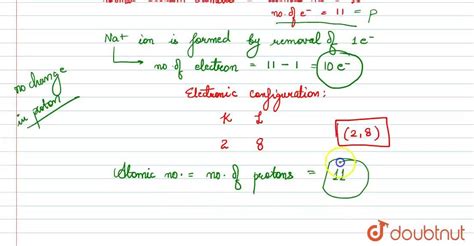 no. of e⁻ = 11 = p
Na⁺ ion is formed by removal of 1e⁻
no. of electron = 11 - 1 = 10 e⁻
no change
in proton
Electronic configuration:
K L
2 8
(2,8)
Atomic no. = no. of protons = 11
doubtnut